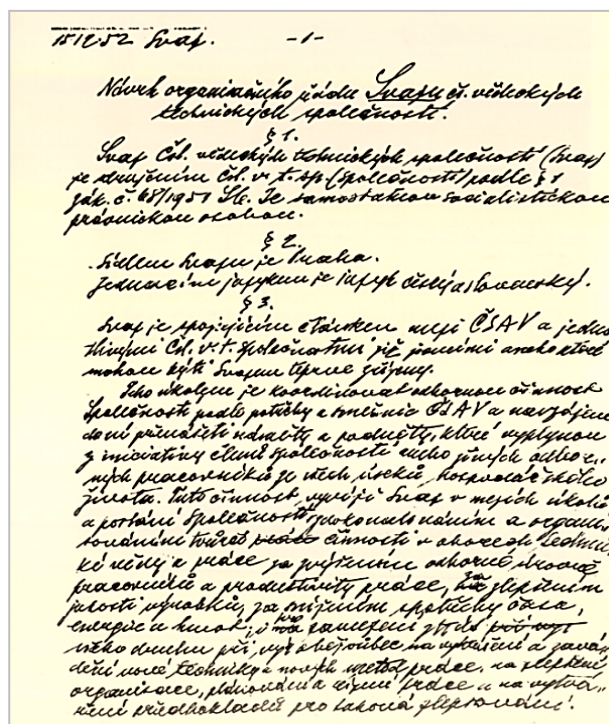 15 12.52 Svaz. -1-
Návrh organisačního řádu Svazu čs. vědeckých
technických společností.
§ 1.
Svaz Čsl. vědeckých technických společností (Svaz)
je sdružením Čsl. v. t. sp. (Společností) podle § 8
zák. č. 68/1951 Sb. Je samostatnou socialistickou
právnickou osobou.
§ 2.
Sídlem Svazu je Praha.
Jednacím jazykem je jazyk český a slovenský.
§ 3.
Svaz je spojujícím článkem mezi ČSAV a jedno
tlivými Čsl. v. t. Společnostmi již
mohou býti Svazem teprve zřízeny.
Jeho úkolem je koordinovat odbornou činnost
Společností podle potřeby a směrnic ČSAV a
náměty a podněty, které vyplynou
z iniciativy členů Společností nebo jiných odbor-
ných pracovníků ze všech úseků hospodářského
života. Tuto činnost vyvíjí Svaz v mezích úkolů
a poslání Společností a organi
činnosti v oborech techni
ké vědy a práce za zvýšením odborné úrovně
pracovníků a produktivity práce, za zlepšením
jakosti výrobků, za snížením spotřeby času,
energie a hmot, zamezení
všeho druhu při na a zavá
dění nové techniky a nových metod práce, na zlepšení
organisace, plánování a řízení práce a na vytvá
ření předpokladů pro taková zlepšování.